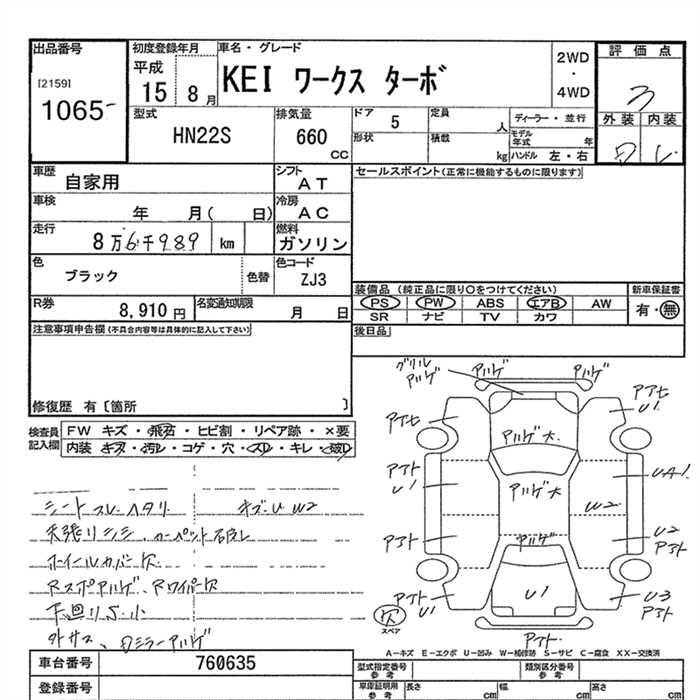 出品番号
[2159]
1065
初度登録年月
平成
15 8月
車名・グレード
KEI ワークス ターボ
2WD
・
4WD
評価点
3
外装 内装
型式
HN22S
排気量
660
CC
ドア
5
定員
人
形状
積載
kg
ディーラー・並行
モデル年式 年
ハンドル 左・右
車歴
自家用
シフト
AT
車検
年 月( 日)
冷房
AC
走行
8万6千989 km
燃料
ガソリン
色
ブラック
色替
色コード
ZJ3
R券
8,910円
名変通知期限
月 日
セールスポイント(正常に機能するものに限ります)
装備品 (純正品に限り○をつけてください)
新車保証書
PS PW ABS エアB AW
有・無
SR ナビ TV カワ
後日品
注意事項申告欄(不具合内容等は具体的に記入して下さい)
修復歴 有〔箇所 〕
検査員
記入欄
FW キズ・飛石・ヒビ割・リペア跡・×要
内装 キズ・汚レ・コゲ・穴・スレ・キレ・破レ
シートスレ・ヘタリ キズ・U W2
天張りシミ、カーペット汚レ
ホイールカバー欠
RスポアハゲRワイパー欠
下廻りS・小
外サス、
ミラーアハゲ
グリル
アハゲ
アハゲ
アハゲ
アハゲ大
アハゲ大
アハゲ
U1
U1
U1
UA1
W2
U2
アフト
アフト
アフト
U1
U1
U3
アフト
アフト
欠
スペア
A-キズ E-エクボ U-凹み W-補修跡 S-サビ C-腐食 XX-交換済
車台番号
760635
登録番号
型式指定番号
参考
類別区分番号
参考
車庫証明用
参考
長さ cm
幅 cm
高さ cm